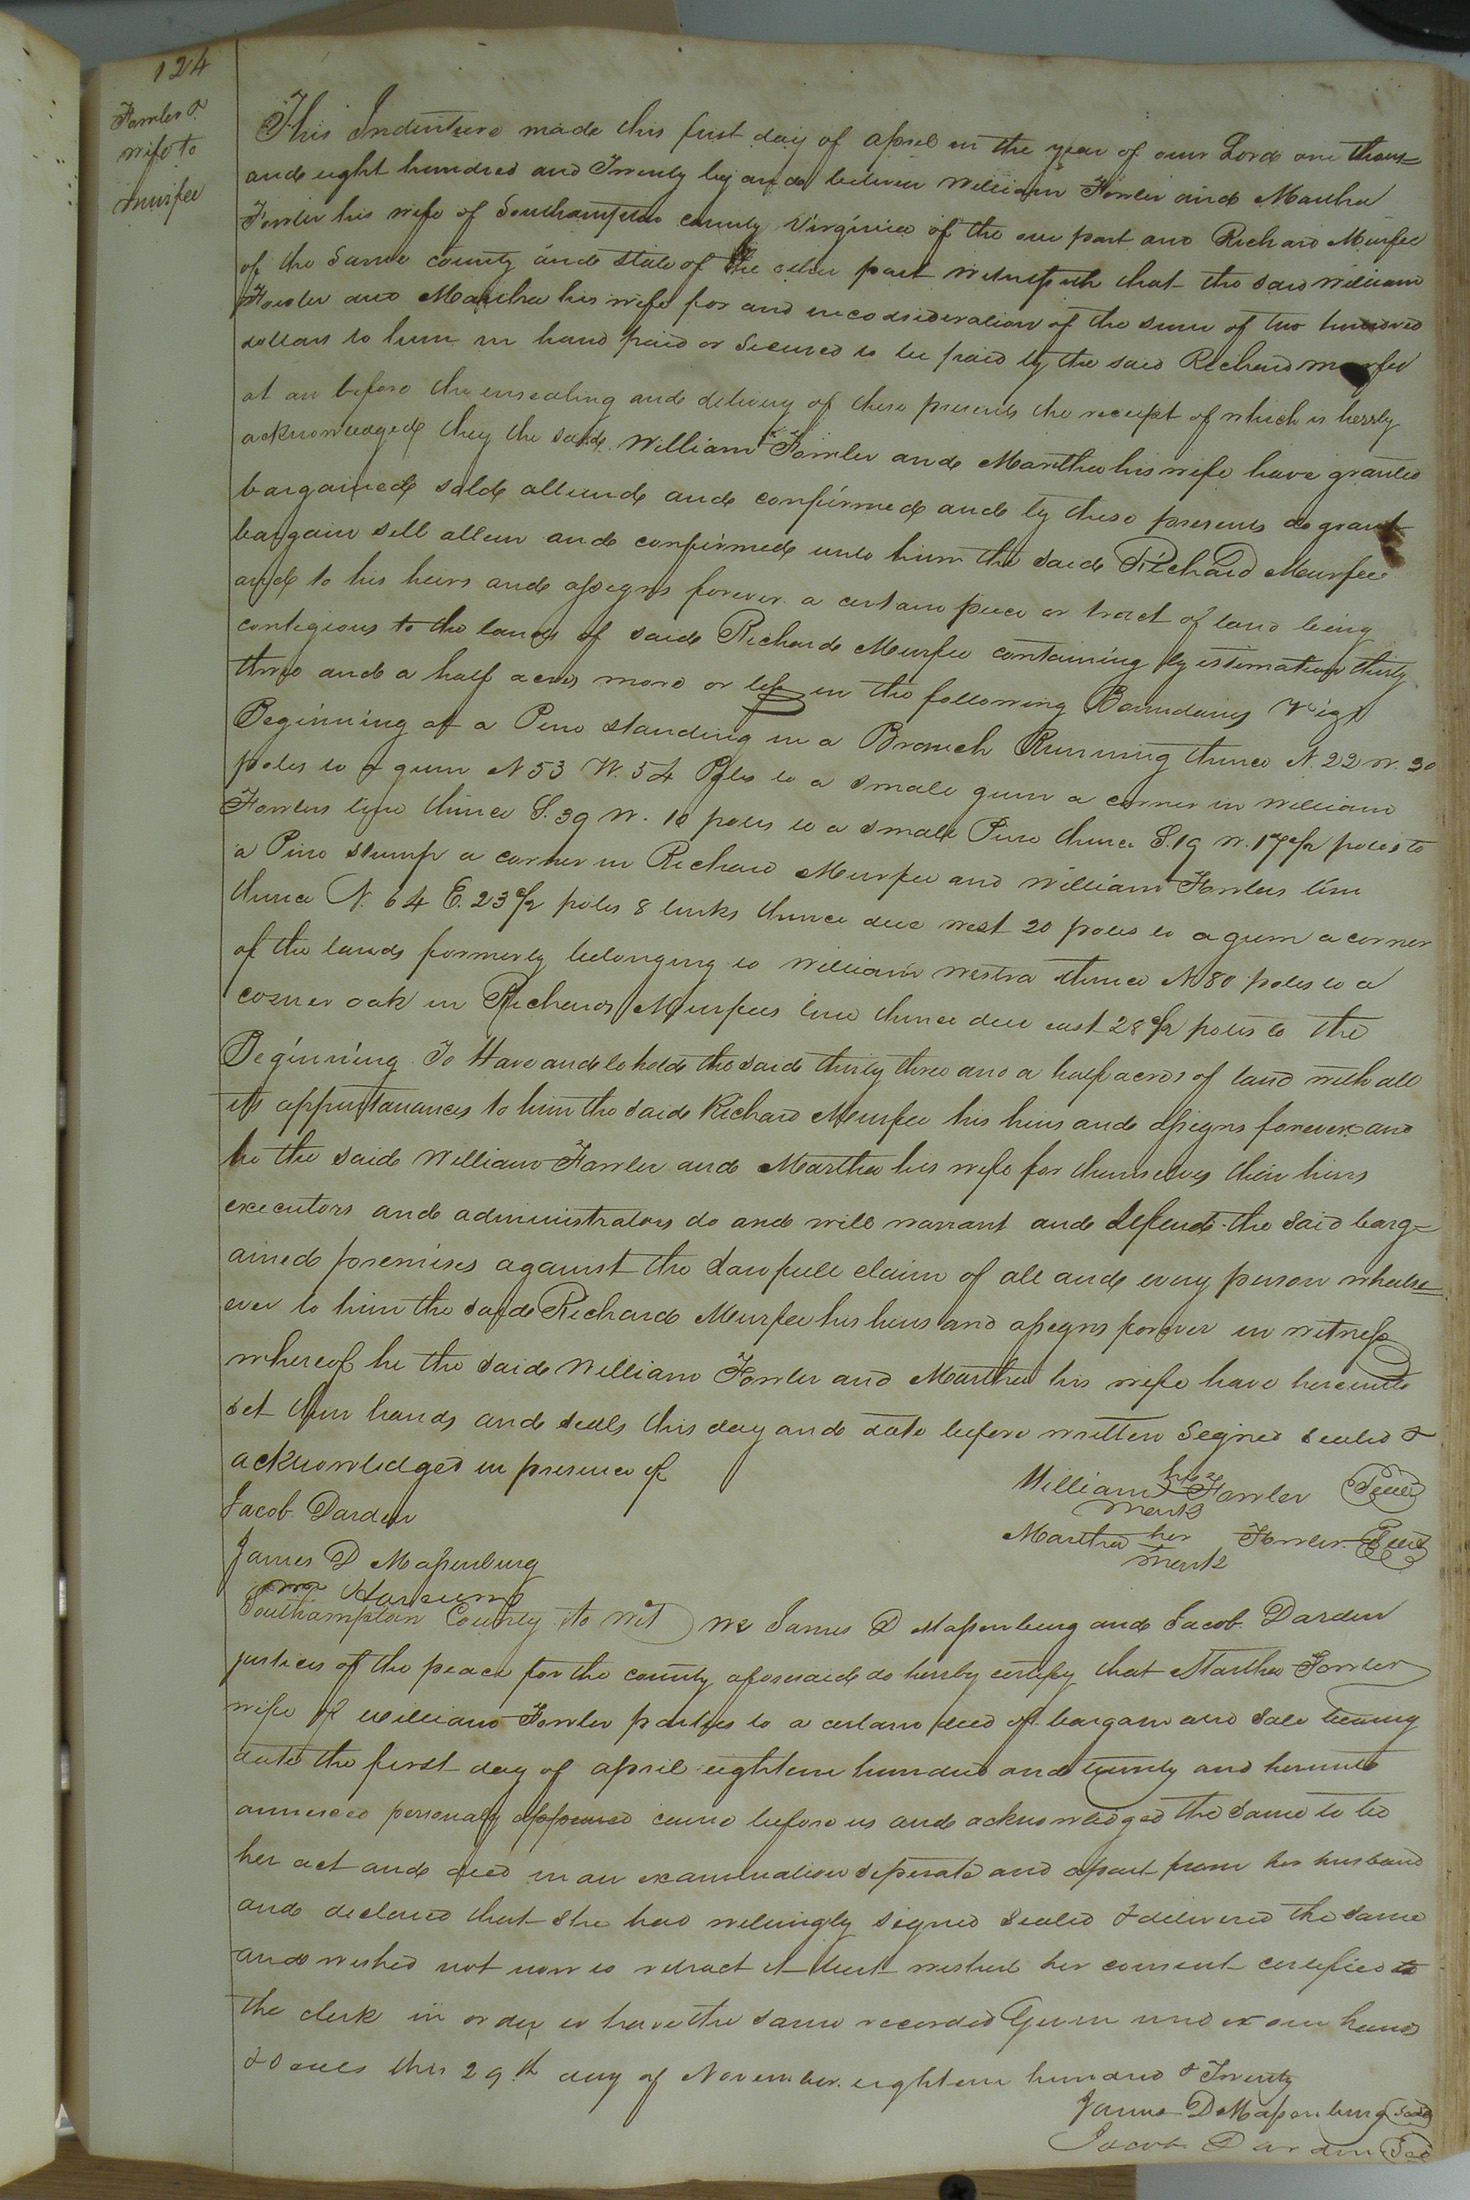 124
Fowler &
wife to
Murfee
This Indenture made this first day of april in the year of our Lord one thous=
and eight hundred and Twenty by and between William Fowler and Martha
Fowler his wife of Southampton county Virginia of the one part and Richard Murfee
of the same county and state of the other part witnesseth that the said William
Fowler and Martha his wife for and inconsideration of the sum of two hundred
dollars to him in hand paid or secured to be paid by the said Richard Murfee
at or before the ensealing and delivery of these presents the receipt of which is hereby
acknowledged they the said William Fowler and Martha his wife have granted
bargained sold aliend and confirmed and by these presents do grant
bargain sell alien and confirmed unto him the said Richard Murfee
and to his heirs and assigns forever a certain piece or tract of land being
contigious to the lands of said Richard Murfee containing by estimation thirty
three and a half acres more or less in the following Boundarys Viz
Beginning at a Pine standing in a Branch Running thence N. 22 W. 30
poles to a gum N 53 W. 54 Poles to a small gum a corner in William
Fowlers line thence S. 39 W. 10 poles to a small Pine thence S. 19 W. 17 1/2 poles to
a Pine stump a corner in Richard Murfee and William Fowlers line
thence N. 64 E. 23 1/2 poles 8 links thence due west 20 poles to a gum a corner
of the lands formerly belonging to William Westra thence N 80 poles to a
corner oak in Richard Murfees line thence due east 28 1/2 poles to the
Beginning To Have and to hold the said thirty three and a half acres of land with all
its appurtanances to him the said Richard Murfee his heirs and assigns forever and
he the said William Fowler and Martha his wife for themselves their heirs
executors and administrators do and will warrant and defend the said barg=
ained premises against the Lawfull claim of all and every person whatso=
ever to him the said Richard Murfee his heirs and assigns forever in witness
whereof he the said William Fowler and Martha his wife have hereunto
set their hands and seals this day and date before written Signed sealed &
acknowledged in presence of
William his Fowler Seal
mark
Jacob Darden
Martha her Fowler Seal
mark
James D Massenburg
Southampton County to wit We James D Massenburg and Jacob Darden
justices of the peace for the county aforesaid do hereby certify that Martha Fowler
wife of William Fowler parties to a certain deed of bargain and Sale bearing
date the first day of april eighteen hundred and twenty and hereunto
annexed personaly appeared came before us and acknowledged the same to be
her act and deed in an examination seperate and apart from her husband
and declared that she had willingly signed sealed & delivered the same
and wished not now to retract it but wished her consent certified to
the clerk in order to have the same recorded Given under our hands
& seals this 29th day of November eighteen hundred & Twenty
James D Massenburg Seal
Jacob Darden Seal